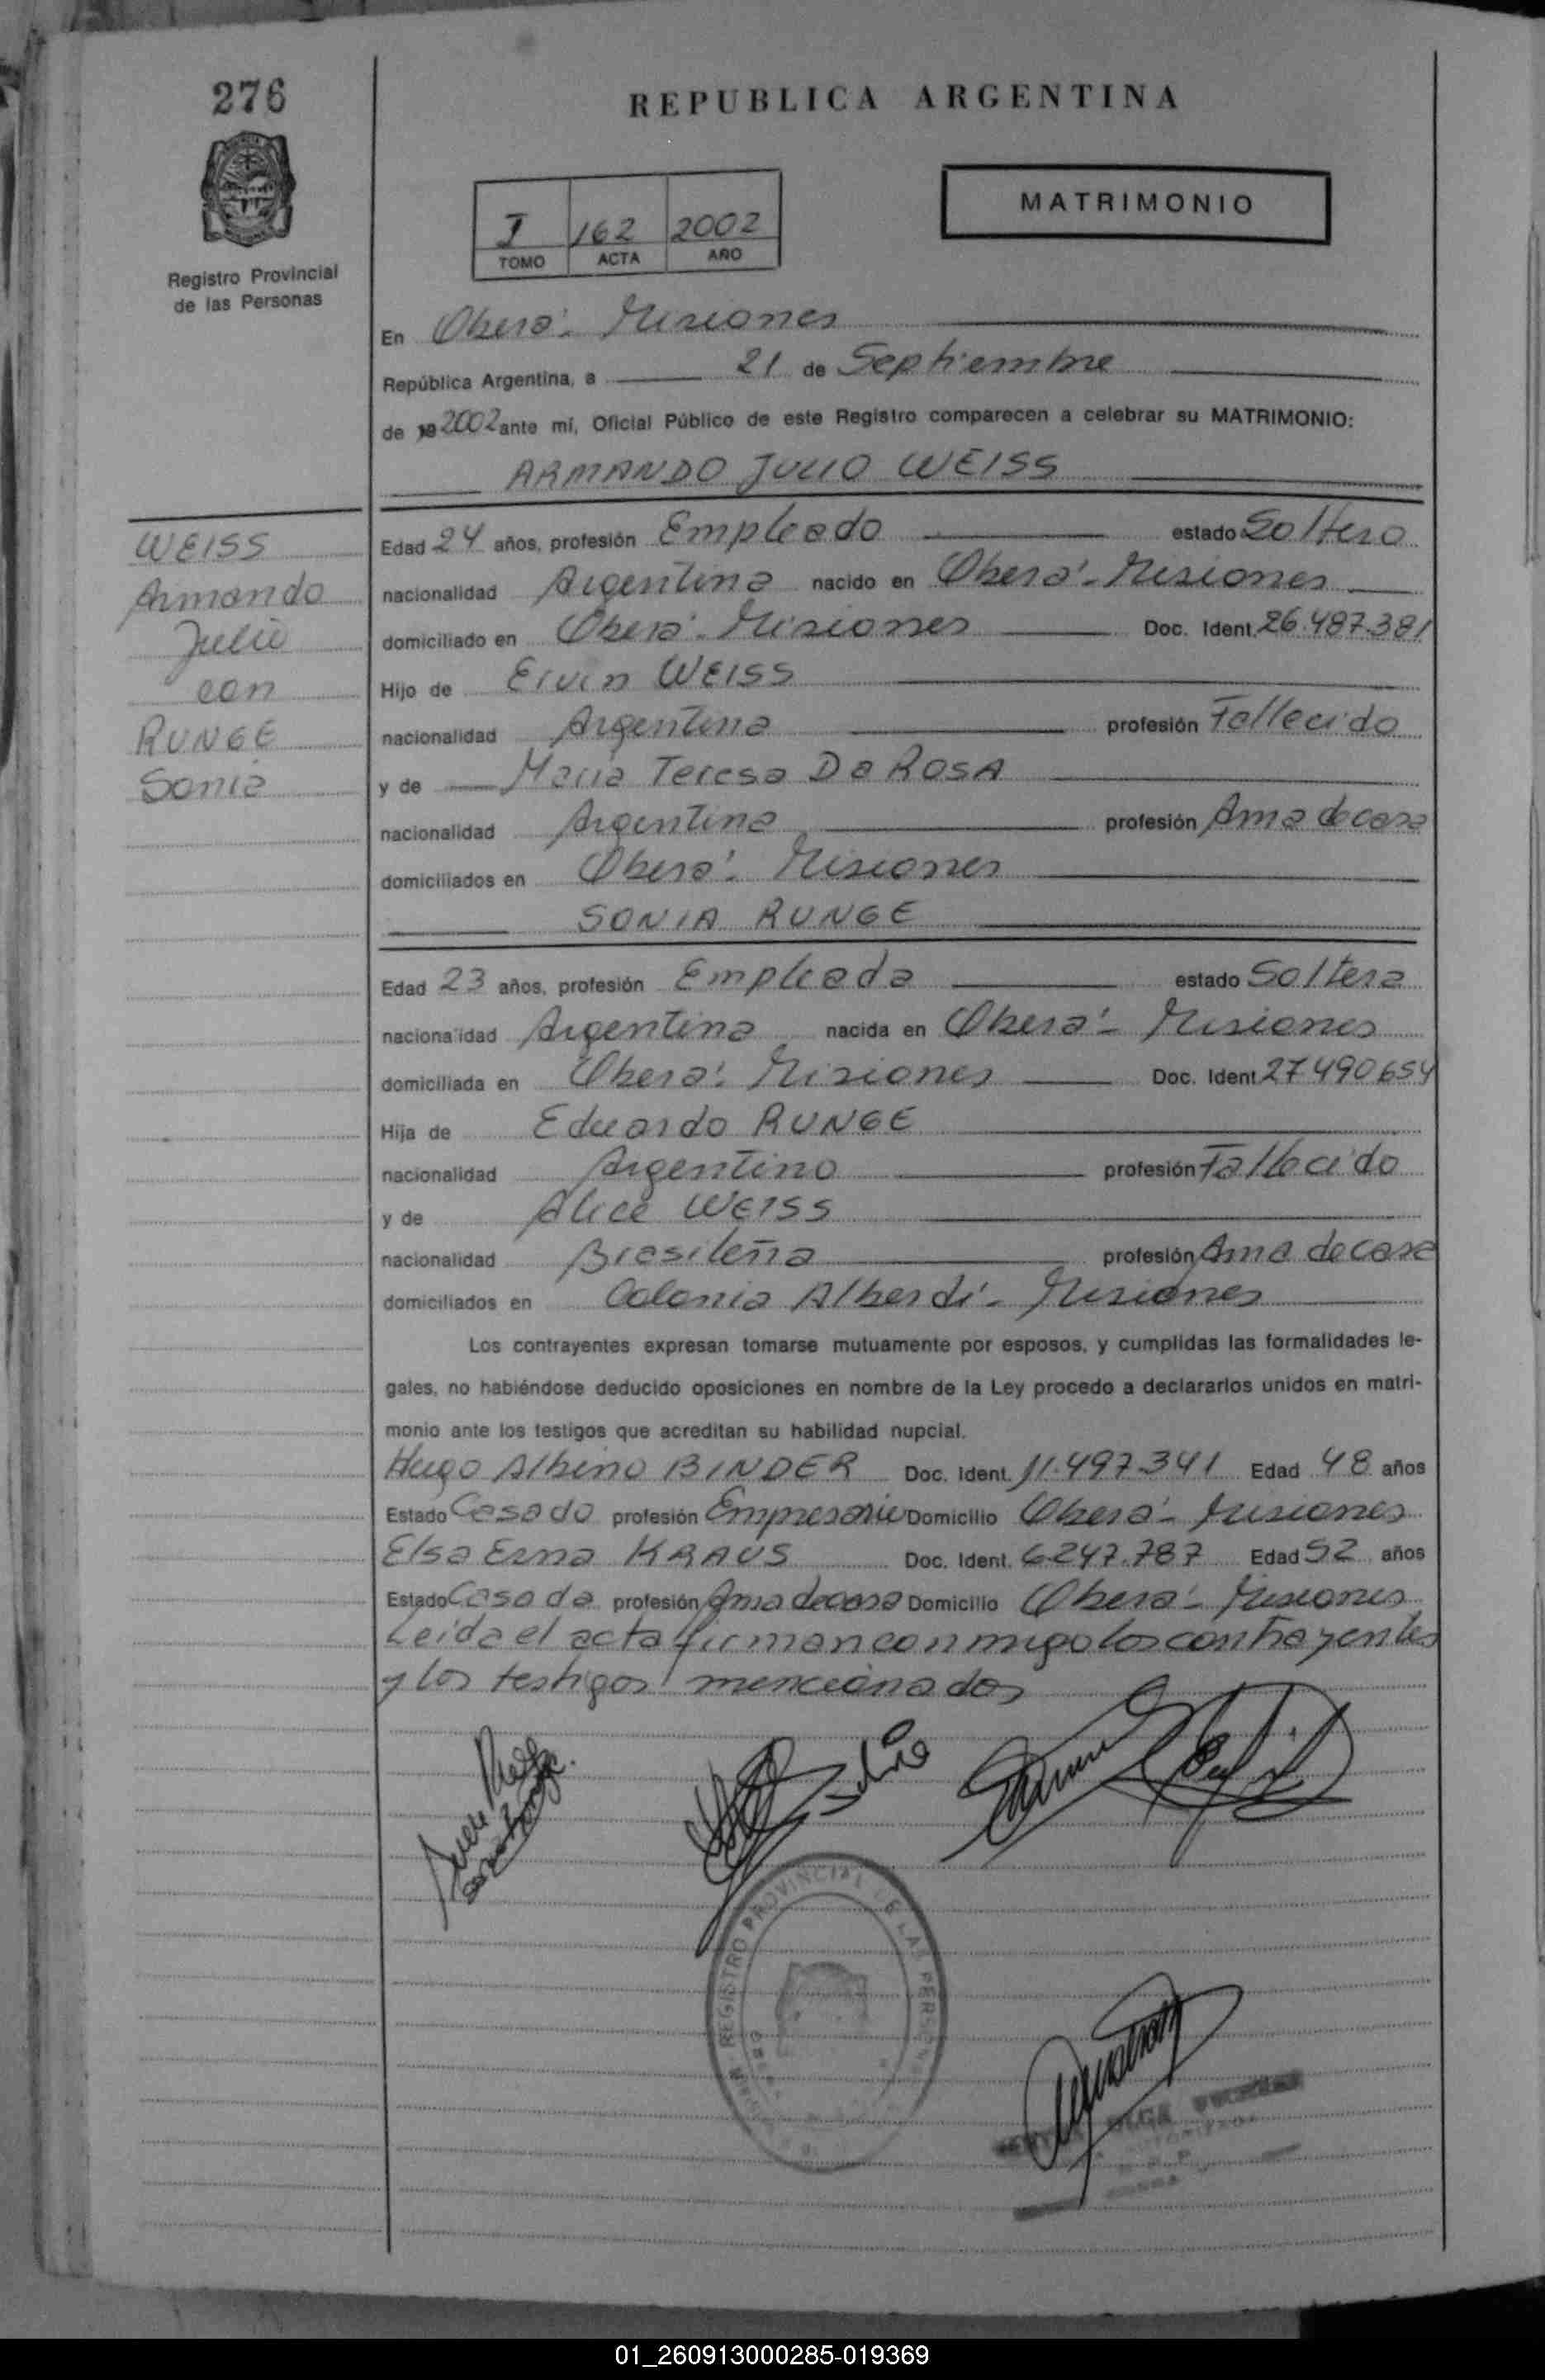 276
REPUBLICA ARGENTINA
MATRIMONIO
I 162 2002
TOMO ACTA AÑO
Registro Provincial
de las Personas
En Oberá - Misiones
República Argentina, a 21 de Septiembre
de 19 2002 ante mí, Oficial Público de este Registro comparecen a celebrar su MATRIMONIO:
ARMANDO JULIO WEISS
WEISS
Armando
Julio
con
RUNGE
Sonia
Edad 24 años, profesión Empleado estado Soltero
nacionalidad Argentina nacido en Oberá - Misiones
domiciliado en Oberá - Misiones Doc. Ident. 26.487.381
Hijo de Ervin WEISS
nacionalidad Argentina profesión Fallecido
y de María Teresa Da ROSA
nacionalidad Argentina profesión Ama de casa
domiciliados en Oberá - Misiones
SONIA RUNGE
Edad 23 años, profesión Empleada estado Soltera
nacionalidad Argentina nacida en Oberá - Misiones
domiciliada en Oberá - Misiones Doc. Ident. 27.490.654
Hija de Eduardo RUNGE
nacionalidad Argentino profesión Fallecido
y de Alice WEISS
nacionalidad Brasileña profesión Ama de casa
domiciliados en Colonia Alberdi - Misiones
Los contrayentes expresan tomarse mutuamente por esposos, y cumplidas las formalidades le-
gales, no habiéndose deducido oposiciones en nombre de la Ley procedo a declararlos unidos en matri-
monio ante los testigos que acreditan su habilidad nupcial.
Hugo Albino BINDER Doc. Ident. 11.497.341 Edad 48 años
Estado Casado profesión Empresario Domicilio Oberá - Misiones
Elsa Erna KRAUS Doc. Ident. 6.247.787 Edad 52 años
Estado Casada profesión Ama de casa Domicilio Oberá - Misiones
Leida el acta firman conmigo los contrayentes
y los testigos mencionados
REGISTRO PROVINCIAL DE LAS PERSONAS
OLGA
01_260913000285-019369